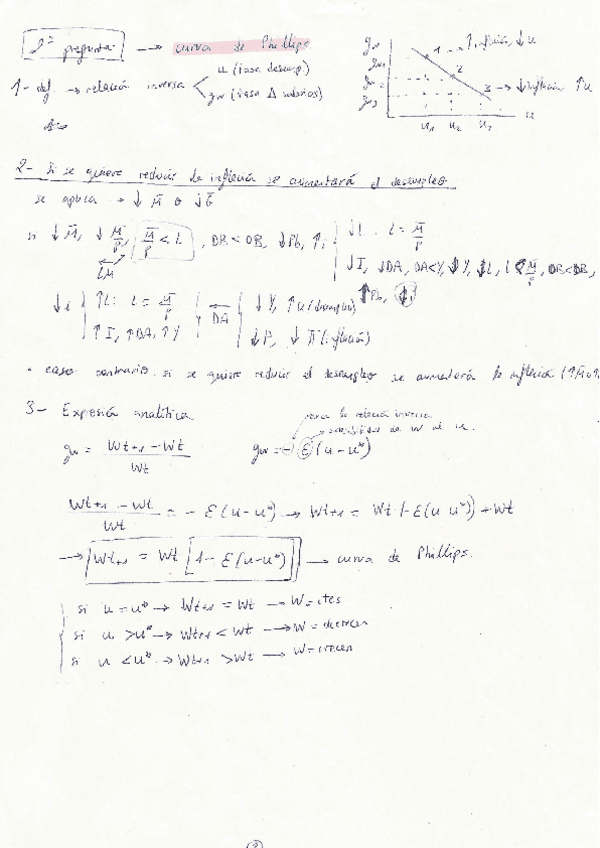 pregunta → curva de Phillips
1- def. → relación inversa
u (tasa desemp.)
gw (tasa Δ salarios)
gw
1 → ↑ inflación, ↓ u
2
3 → ↓ inflación ↑ u
u1 u2 u3 u
2- si se quiere reducir la inflación se aumentará el desempleo
se aplica → ↓ M̄ o ↓ Ḡ
si ↓ M̄, ↓ M̄/P, M̄/P < L, DB < OB, ↓ Pb, ↑ i
LM
↓ L: L = M̄/P
↓ I, ↓ DA, DA < Y, ↓ Y, ↓ L, L < M̄/P, OB < DB,
↑ Pb, ↓ i
↓ i
↑ L: L = M̄/P
↑ I, ↑ DA, ↑ Y
DA
↓ Y, ↑ u (desempleo)
↓ P, ↓ π (inflación)
- caso contrario: si se quiere reducir el desempleo se aumentará la inflación
3- Expresión analítica
marca la relación inversa
sensibilidad de W al u.
gw = (Wt+1 - Wt) / Wt gw = - ε (u - u*)
(Wt+1 - Wt) / Wt = - ε (u - u*) → Wt+1 = Wt (- ε (u u*)) + Wt
→ Wt+1 = Wt [1 - ε (u - u*)] → curva de Phillips.
si u = u* → Wt+1 = Wt → W = ctes
si u > u* → Wt+1 < Wt → W = decrecen
si u < u* → Wt+1 > Wt → W = crecen